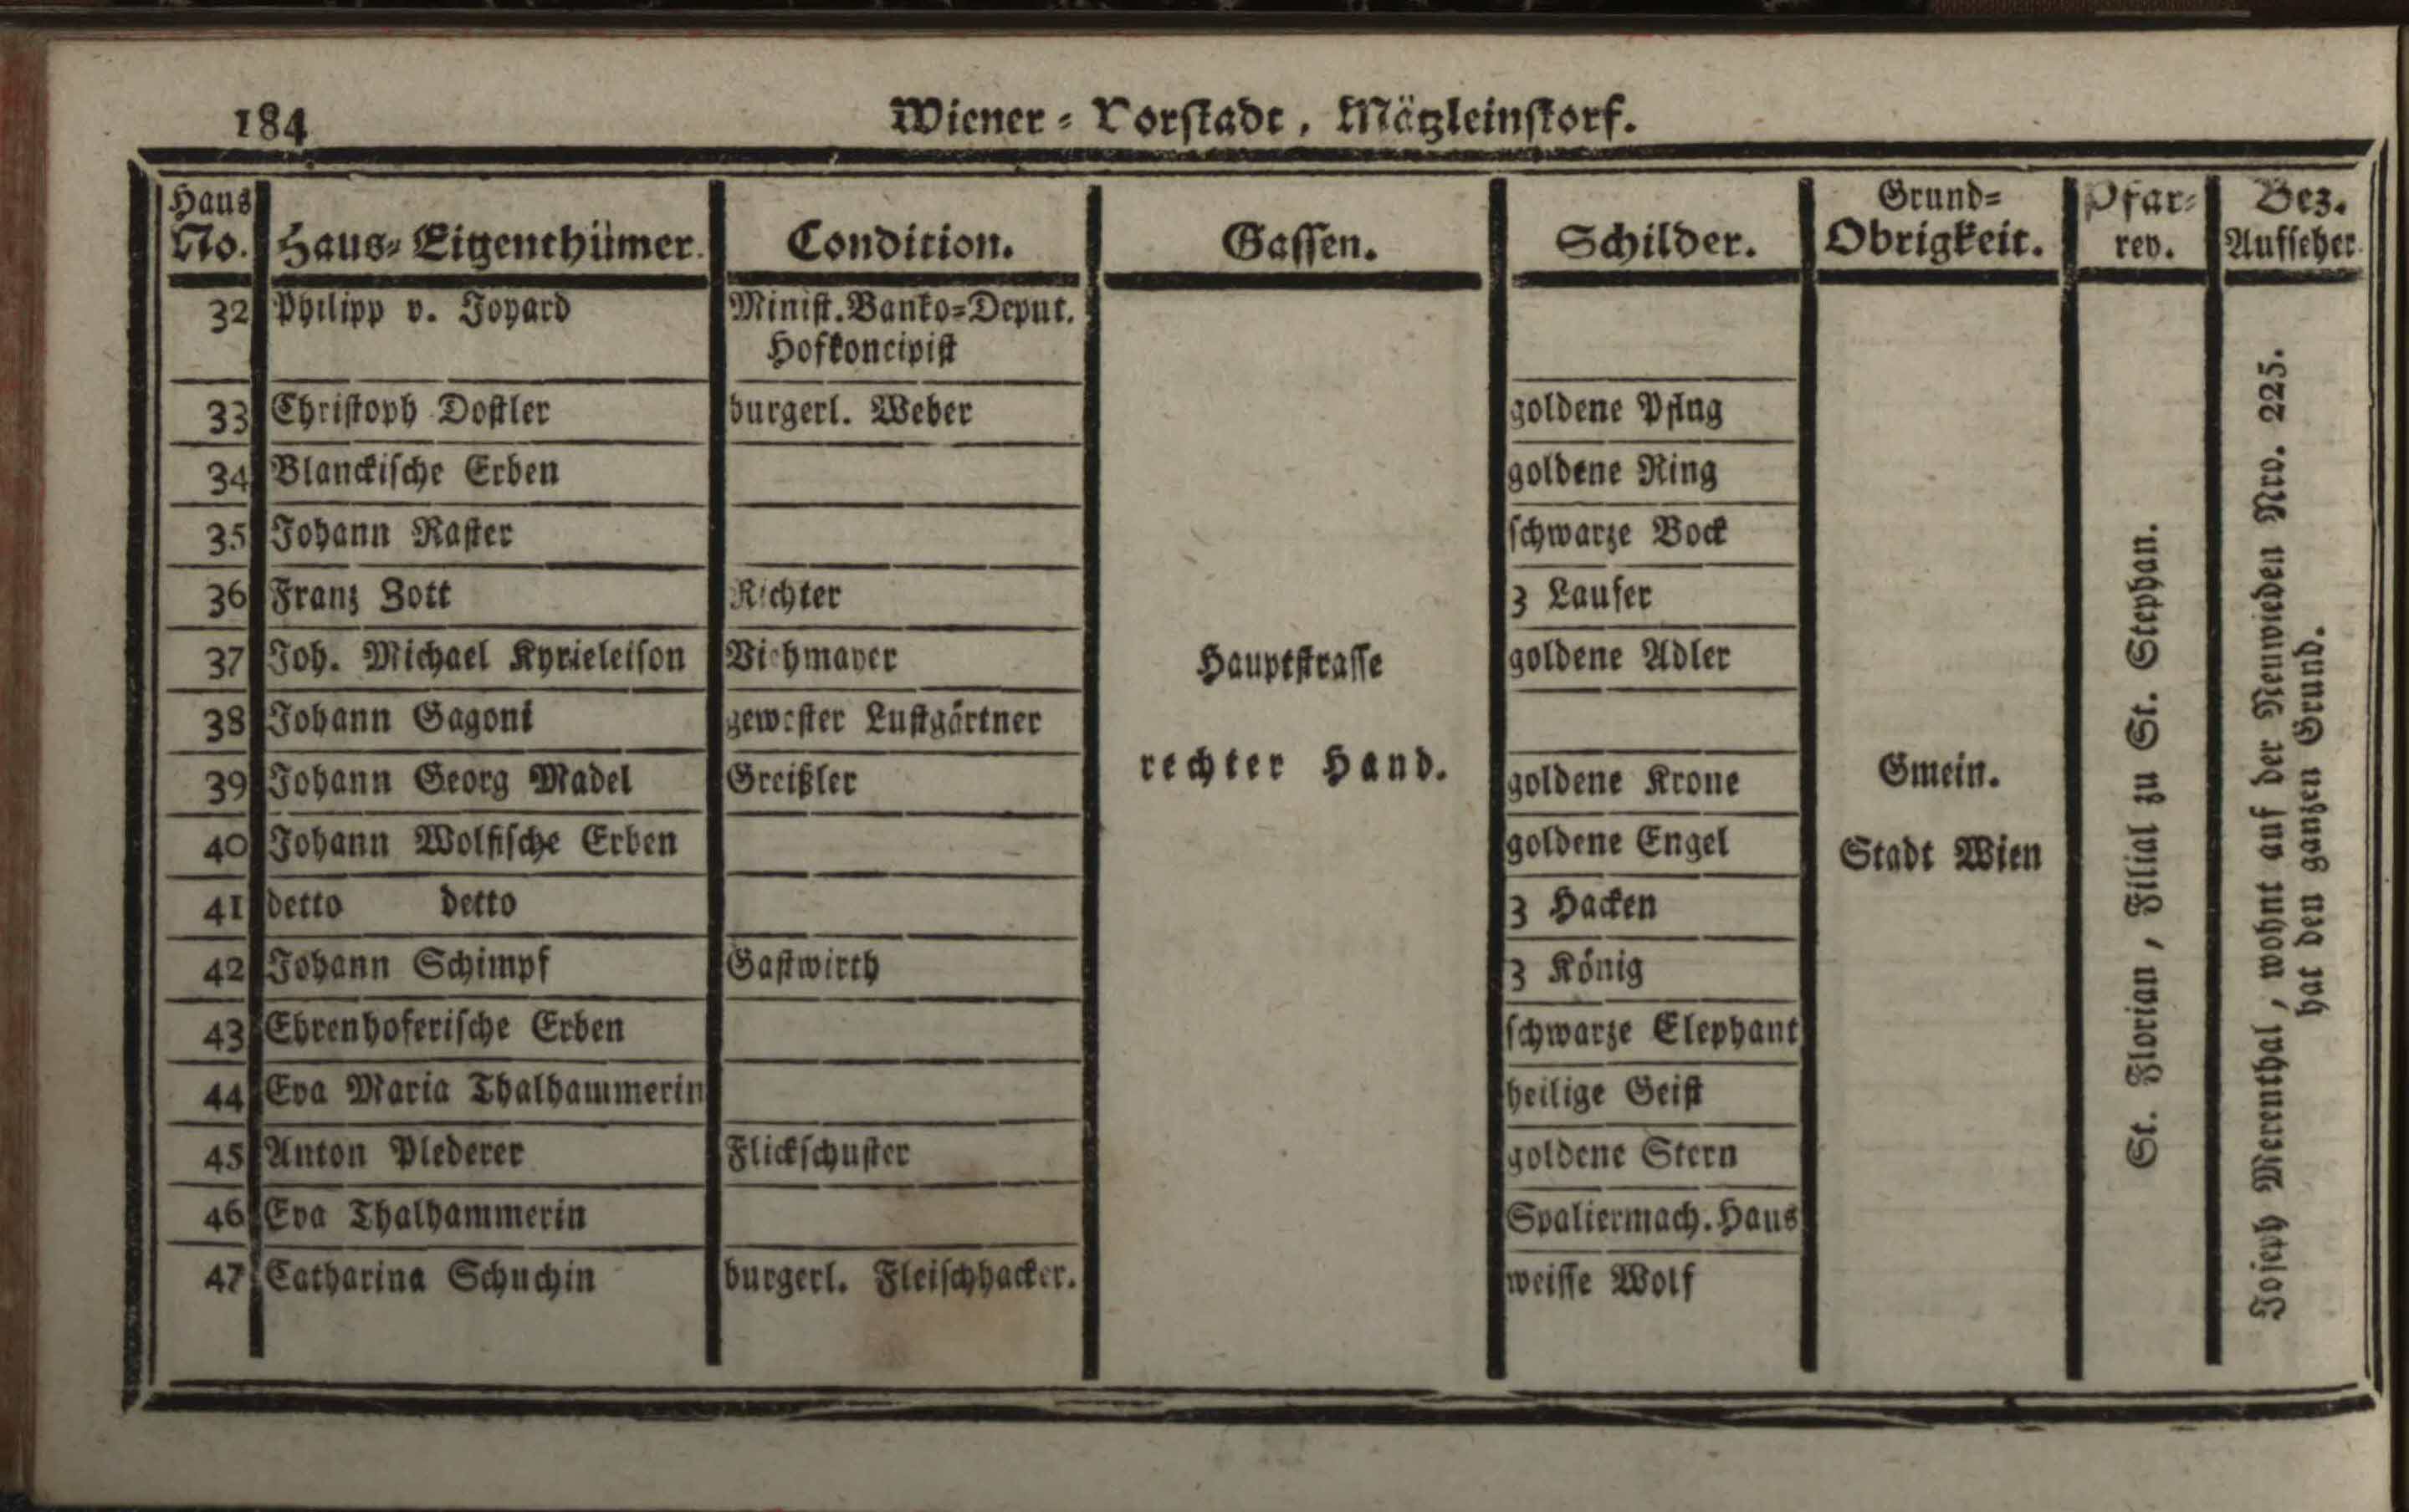 184
Wiener-Vorstadt, Mätzleinstorf.
Haus No. Haus-Eigenthümer. Condition. Gassen. Schilder. Grund-Obrigkeit. Pfar-rey. Bez. Aufseher.
32 Philipp v. Joyard Minist. Banko-Deput.
Hofkoncipist
33 Christoph Dostler burgerl. Weber goldene Pflug
34 Blanckische Erben goldene Ring
35 Johann Raster schwarze Bock
36 Franz Zott Richter 3 Laufer
37 Joh. Michael Kyrieleison Viehmayer goldene Adler
38 Johann Gagoni gewester Lustgärtner
39 Johann Georg Madel Greißler goldene Krone
40 Johann Wolfische Erben goldene Engel
41 detto detto 3 Hacken
42 Johann Schimpf Gastwirth 3 König
43 Ehrenhoferische Erben schwarze Elephant
44 Eva Maria Thalhammerin heilige Geist
45 Anton Plederer Flickschuster goldene Stern
46 Eva Thalhammerin Spaliermach. Haus
47 Catharina Schuchin burgerl. Fleischhacker. weisse Wolf
Hauptstrasse
rechter Hand.
Gmein.
Stadt Wien
St. Florian, Filial zu St. Stephan.
Joseph Merenthal, wohnt auf der Neuwieden Nro. 225.
hat den ganzen Grund.